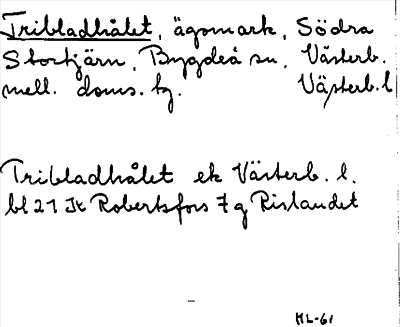 Tribladhålet, ägomark, Södra
Storkjärn, Bygdeå sn, Västerb.
mell. doms. tg. Västerb. l
Tribladhålet ek Västerb. l.
bl 21 Jk Robertsfors 7 g Rislandet
ML-61